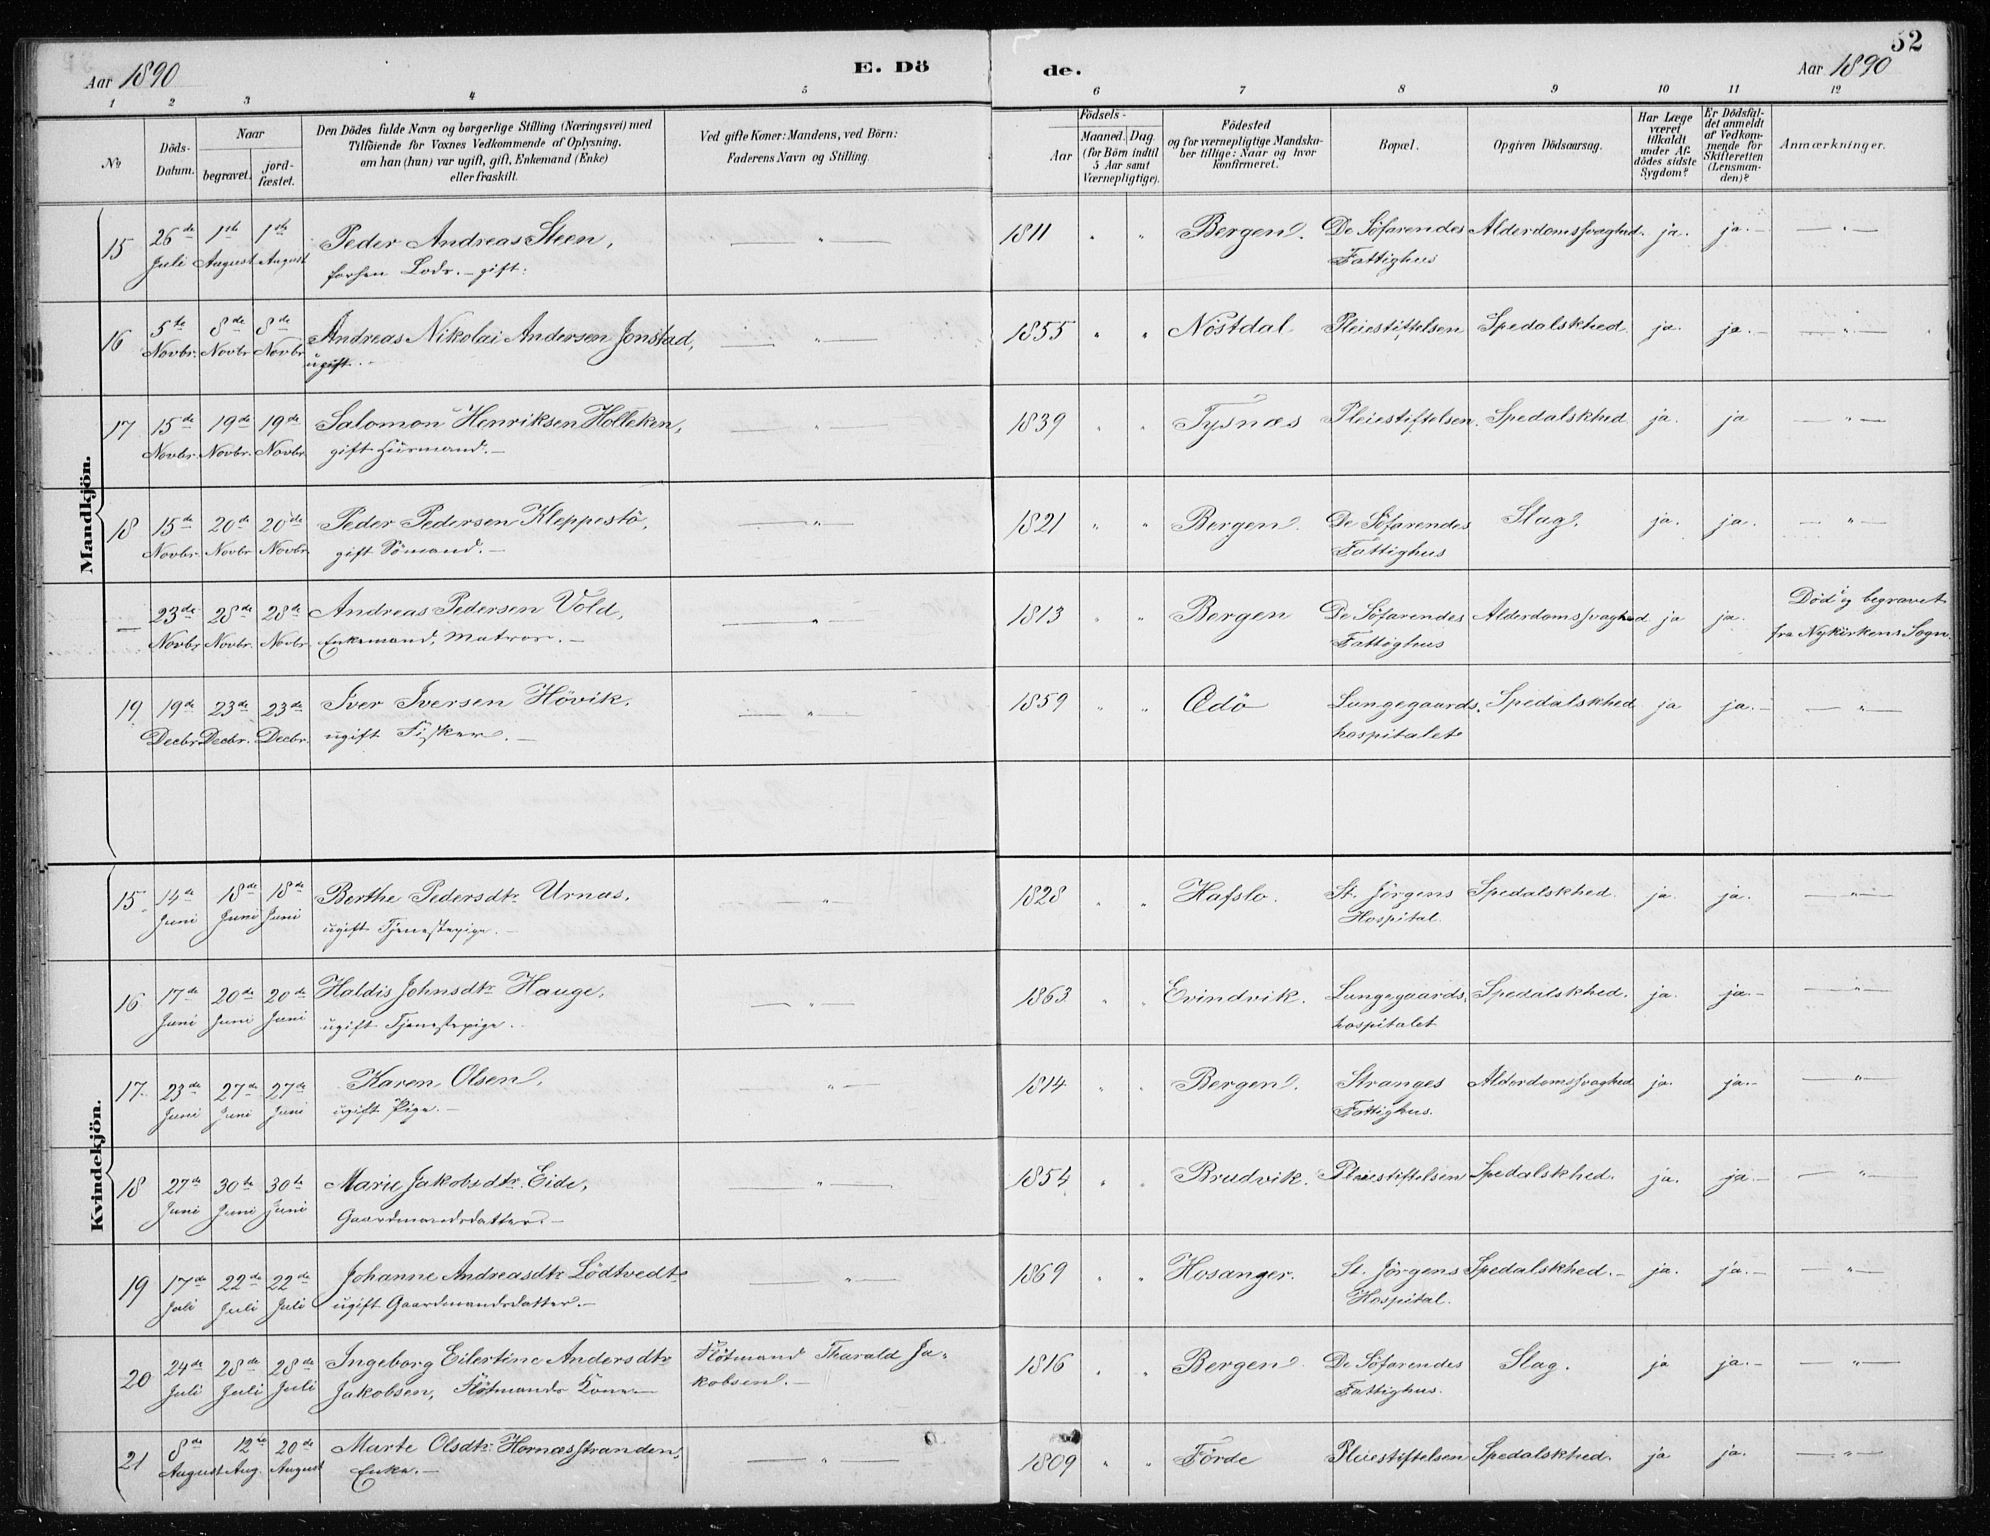 52
Aar 1890
E. Dö
de.
Aar 1890
1 2 3 4 5 6 7 8 9 10 11 12
No
Döds-Datum.
Naar
begravet.
jord-fæstet.
Den Dödes fulde Navn og borgerlige Stilling (Næringsvei) med
Tilföiende for Voxnes Vedkommende af Oplysning,
om han (hun) var ugift, gift, Enkemand (Enke)
eller fraskilt.
Ved gifte Koner: Mandens, ved Börn:
Faderens Navn og Stilling.
Födsels-
Aar
Maaned. Dag.
(for Börn indtil
5 Aar samt
Værnepligtige).
Födested
og for værnepligtige Mandska-
ber tillige: Naar og hvor
konfirmeret.
Bopæl.
Opgiven Dödsaarsag.
Har Læge
været
tilkaldt
under Af-
dödes sidste
Sygdom?
Er Dödsfal-
det anmeldt
af Vedkom-
mende for
Skifteretten
(Lensman-
den)?
Anmærkninger.
Mandkjön.
15 26de Juli 1ste August 1ste August Peder Andreas Steen, — " — 1811 " " Bergen. De Söfarendes Alderdomssvaghed. ja. ja. — — " —
forhen Lodr. — gift. Fattighus
16 5te Novbr. 8de Novbr 8de Novbr Andreas Nikolai Andersen Jonstad, — " — 1855 " " Nöstdal Pleiestiftelsen Spedalskhed. ja. ja. — — " —
ugift. —
17 15de Novbr. 19de Novbr. 19de Novbr. Salomon Henriksen Holleken, — " — 1839 " " Tysnæs Pleiestiftelsen. Spedalskhed ja. ja — " —
gift Huusmand. —
18 15de Novbr. 20de Novbr 20de Novbr Peder Pedersen Kleppestö, — " — 1821 " " Bergen. De Söfarendes Slag. ja. ja. — " —
gift Sömand. — Fattighus
— 23de Novbr 28de Novbr. 28de Novbr. Andreas Pedersen Vold, — " — 1813 " " Bergen De Söfarendes Alderdomssvaghed ja ja. Död i og begravet
Enkemand, Matros. — Fattighus fra Nykirkens Sogn.
19 19de Decbr. 23de Decbr. 23de Decbr. Iver Iversen Hövik, — " — 1859 " " Ædö Lungegaards- Spedalskhed ja ja. — — " —
ugift Fisker. — hospitalet
Kvindekjön.
15. 14de Juni 18de Juni 18de Juni Berthe Pedersdtr. Urnæs, — " — 1828 " " Hafslo. St. Jörgens Spedalskhed. ja. ja. — " —
ugift Tjenestepige. — Hospital.
16 17de Juni 20de Juni 20de Juni Haldis Johnsdtr. Hauge, — " — 1863 " " Evindvik. Lungegaards. Spedalskhed. ja. ja. — — " —
ugift Tjenestepige. hospitalet
17. 23de Juni 27de Juni 27de Juni Karen Olsen, — " — 1814 " " Bergen. Stranges Alderdomssvaghed ja. ja. — — " —
ugift Pige. — Fattighus.
18 27de Juni 30te Juni 30te Juni Marie Jakobsdtr. Eide, — " — 1854 " " Brudvik. Pleiestiftelsen Spedalskhed. ja. ja — — " —
Gaardmandsdatter. —
19 17de Juli 22de Juli 22de Juli Johanne Andreasdtr. Lödtvedt — " — 1869 " " Hosanger. St. Jörgens Spedalskhed. — ja. ja. — — " —
ugift Gaardmandsdatter. — Hospital.
20 24de Juli 28de Juli 28de Juli Ingeborg Eilertine Andersdtr. Flötmand Tharald Ja- 1816 " " Bergen De Söfarendes Slag. ja ja. — — " —
Jakobsen, Flötmands Kone — kobsen. — Fattighus.
21 8de August 12te Aug. 20de August Marte Olsdtr. Hornæsstranden, — " — 1809 " " Förde Pleiestiftelsen Spedalskhed. ja ja. — " —
Enke. —